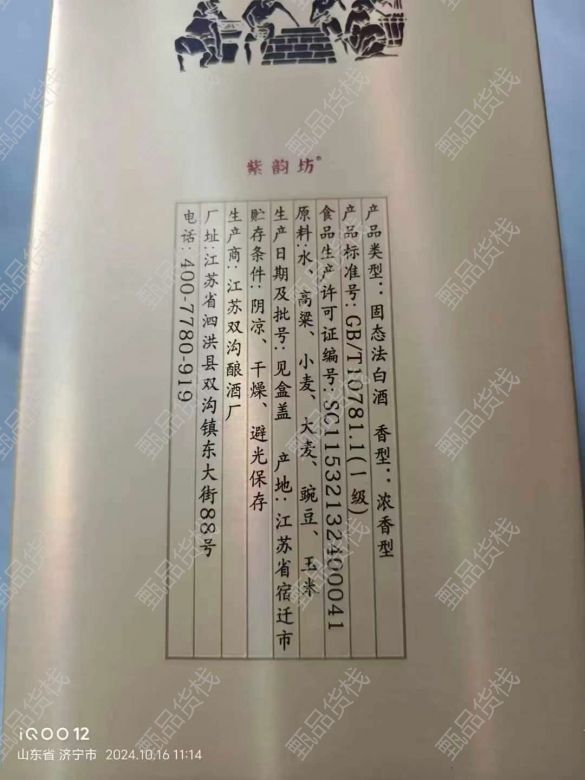 紫韵坊®
产品类型：固态法白酒 香型：浓香型
产品标准号：GB/T10781.1(一级)
食品生产许可证编号：SC11532132400041
原料：水、高粱、小麦、大麦、豌豆、玉米
生产日期及批号：见盒盖 产地：江苏省宿迁市
贮存条件：阴凉、干燥、避光保存
生产商：江苏双沟酿酒厂
厂址：江苏省泗洪县双沟镇东大街88号
电话：400-7780-919
iQOO 12
山东省 济宁市 2024.10.16 11:14
甄品货栈